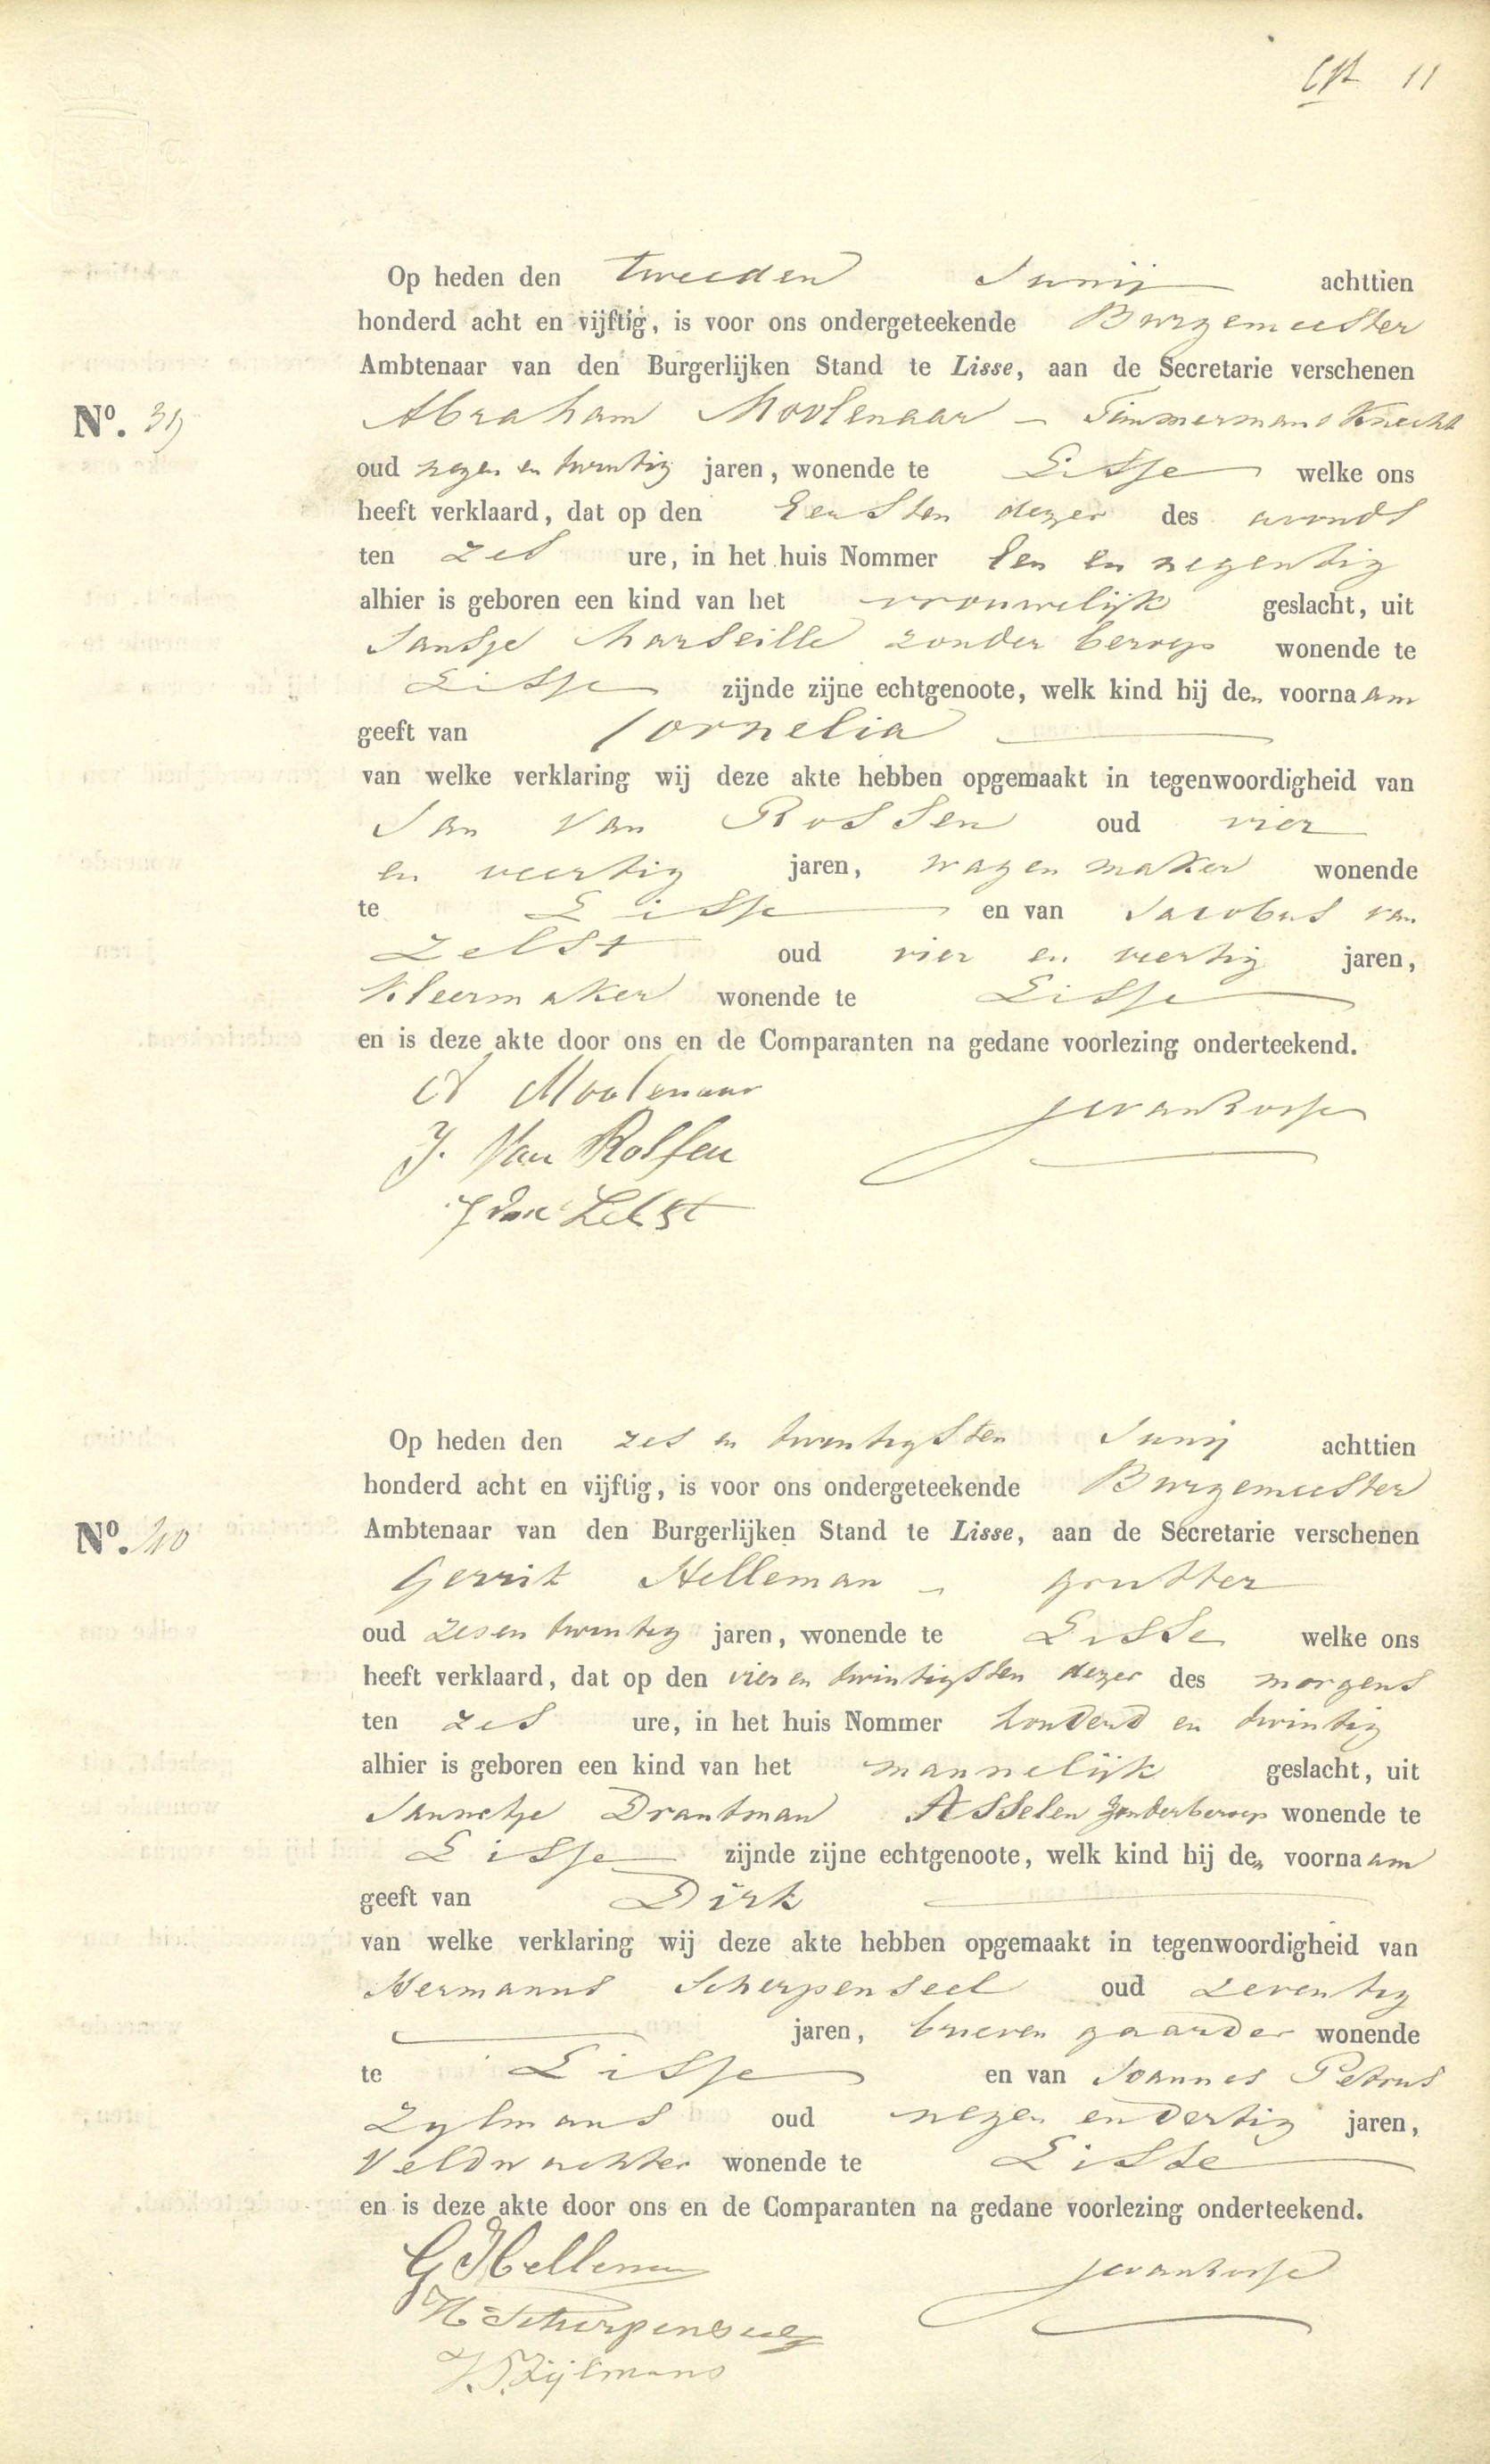 11
Op heden den tweeden Junij achttien
honderd acht en vijftig, is voor ons ondergeteekende Burgemeester
Ambtenaar van den Burgerlijken Stand te Lisse, aan de Secretarie verschenen
No. 39
Abraham Moolenaar – Timmermans Knecht
oud negen en twintig jaren, wonende te Lisse welke ons
heeft verklaard, dat op den Eersten dezer des avonds
ten zes ure, in het huis Nommer Een en negentig
alhier is geboren een kind van het vrouwelijk geslacht, uit
Jansje Marseille zonder beroep wonende te
Lisse zijnde zijne echtgenoote, welk kind hij den voornaam
geeft van Cornelia
van welke verklaring wij deze akte hebben opgemaakt in tegenwoordigheid van
Jan Van Rossen oud vier
en veertig jaren, wagenmaker wonende
te Lisse en van Jacobus van
Zelst oud vier en veertig jaren,
Kleermaker wonende te Lisse
en is deze akte door ons en de Comparanten na gedane voorlezing onderteekend.
A Moolenaar
J. Van Rossen
J van Zelst
Op heden den zes en twintigsten Junij achttien
honderd acht en vijftig, is voor ons ondergeteekende Burgemeester
No. 40
Ambtenaar van den Burgerlijken Stand te Lisse, aan de Secretarie verschenen
Gerrit Helleman – grutter
oud zes en twintig jaren, wonende te Lisse welke ons
heeft verklaard, dat op den vier en twintigsten dezer des morgens
ten zes ure, in het huis Nommer honderd en twintig
alhier is geboren een kind van het mannelijk geslacht, uit
Jannetje Drantman Asselen zonder beroep wonende te
Lisse zijnde zijne echtgenoote, welk kind hij den voornaam
geeft van Dirk
van welke verklaring wij deze akte hebben opgemaakt in tegenwoordigheid van
Hermanus Scherpenseel oud zeventig
jaren, brieven gaarder wonende
te Lisse en van Joannes Petrus
Zylmans oud negen en dertig jaren,
Veldwachter wonende te Lisse
en is deze akte door ons en de Comparanten na gedane voorlezing onderteekend.
G Helleman
H Scherpenseel
J. P. Zijlmans